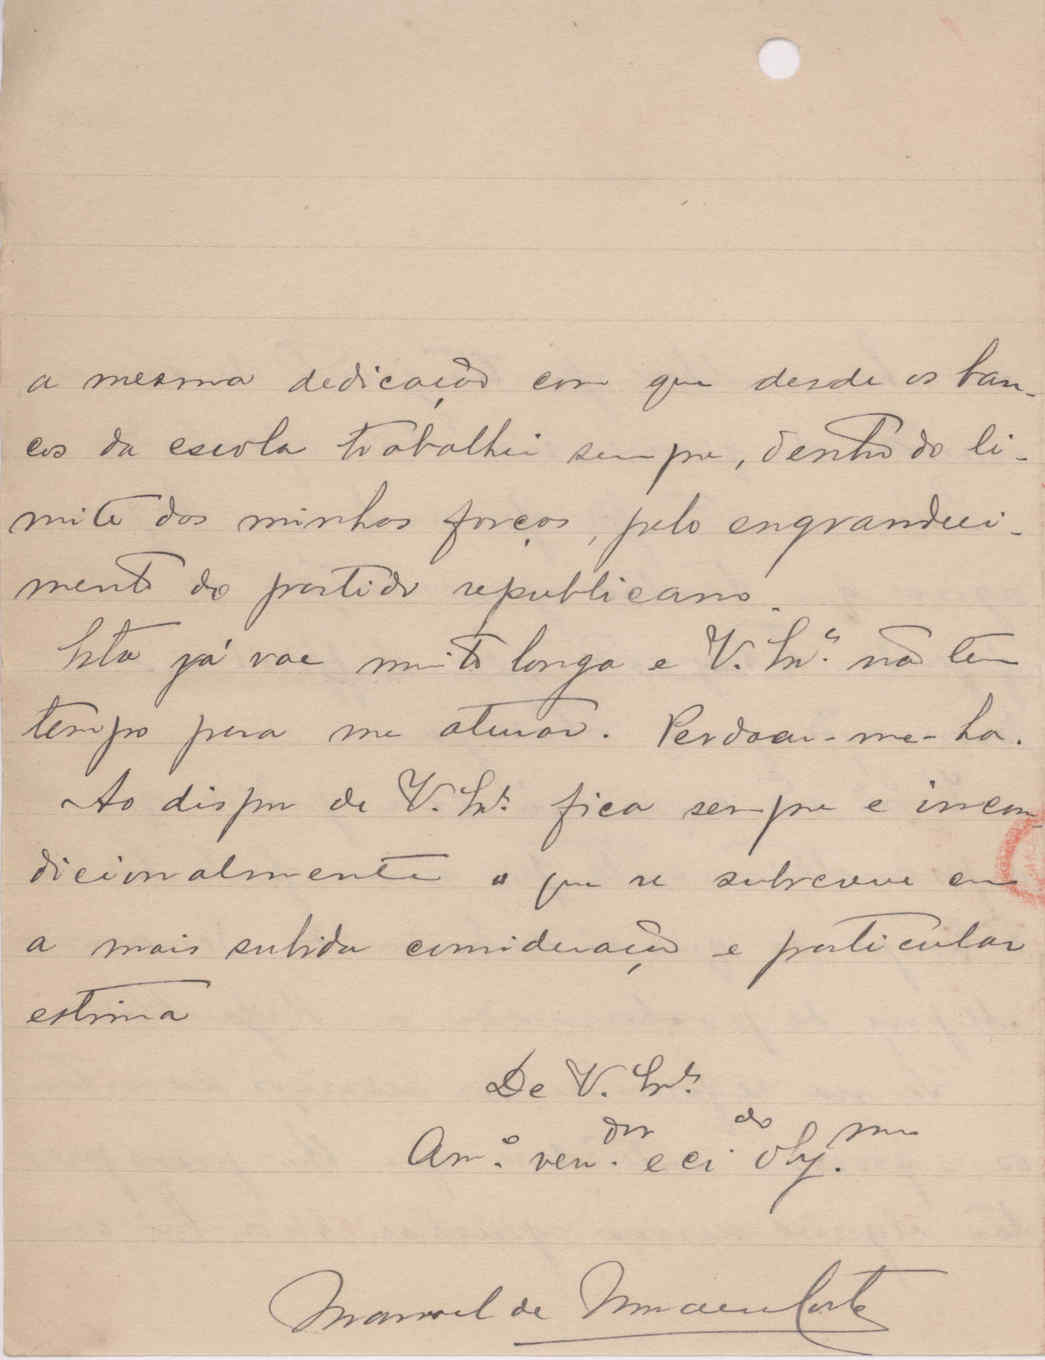 a mesma dedicação com que desde os ban-
cos da escola trabalhei sempre, dentro do li-
mite das minhas forças, pelo engrandeci-
mento do partido republicano.
Esta já vae muito longa e V. Ex.ª não tem
tempo para me aturar. Perdoar-me-ha.
Ao dispor de V. Ex.ª fica sempre e incon-
dicionalmente o que se subscreve com
a mais subida consideração e particular
estima
De V. Ex.ª
Am.º ven.dor e cr.do obg.mo
Manoel de